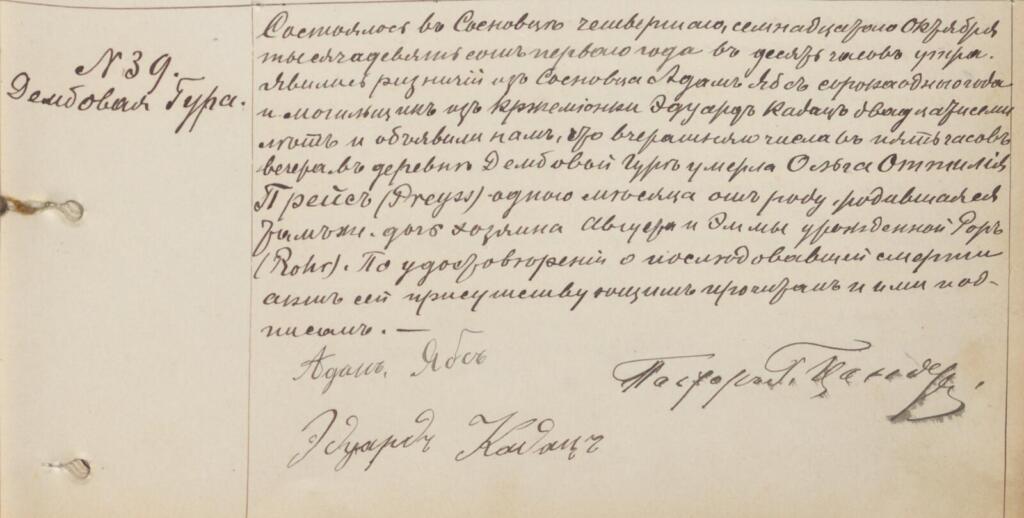 N 39.
Дембовая Гура.
Состоялось въ Сосновцѣ четвертаго, семнадцатаго Октября
тысяча девятьсотъ перваго года въ десять часовъ утра.
Явились ризничій изъ Сосновца Адамъ Ябсъ сорока одного года
и могильщикъ изъ Кржеміонки Эдуардъ Кадацъ двадцати семи
лѣтъ и объявили намъ, что вчерашняго числа въ пять часовъ
вечера въ деревнѣ Дембовой Гурѣ умерла Ольга Оттилія
Прейсъ (Preyss) одного мѣсяца отъ роду, родившаяся
тамъ же. дочь хозяина Августа и Эммы урожденной Роръ
(Rohr). По удостовѣреній о послѣдовавшей смерти
актъ сей присутствующимъ прочитанъ и ими под-
писанъ. —
Адамъ Ябсъ
Пасторъ Г.
Эдуардъ Кадацъ